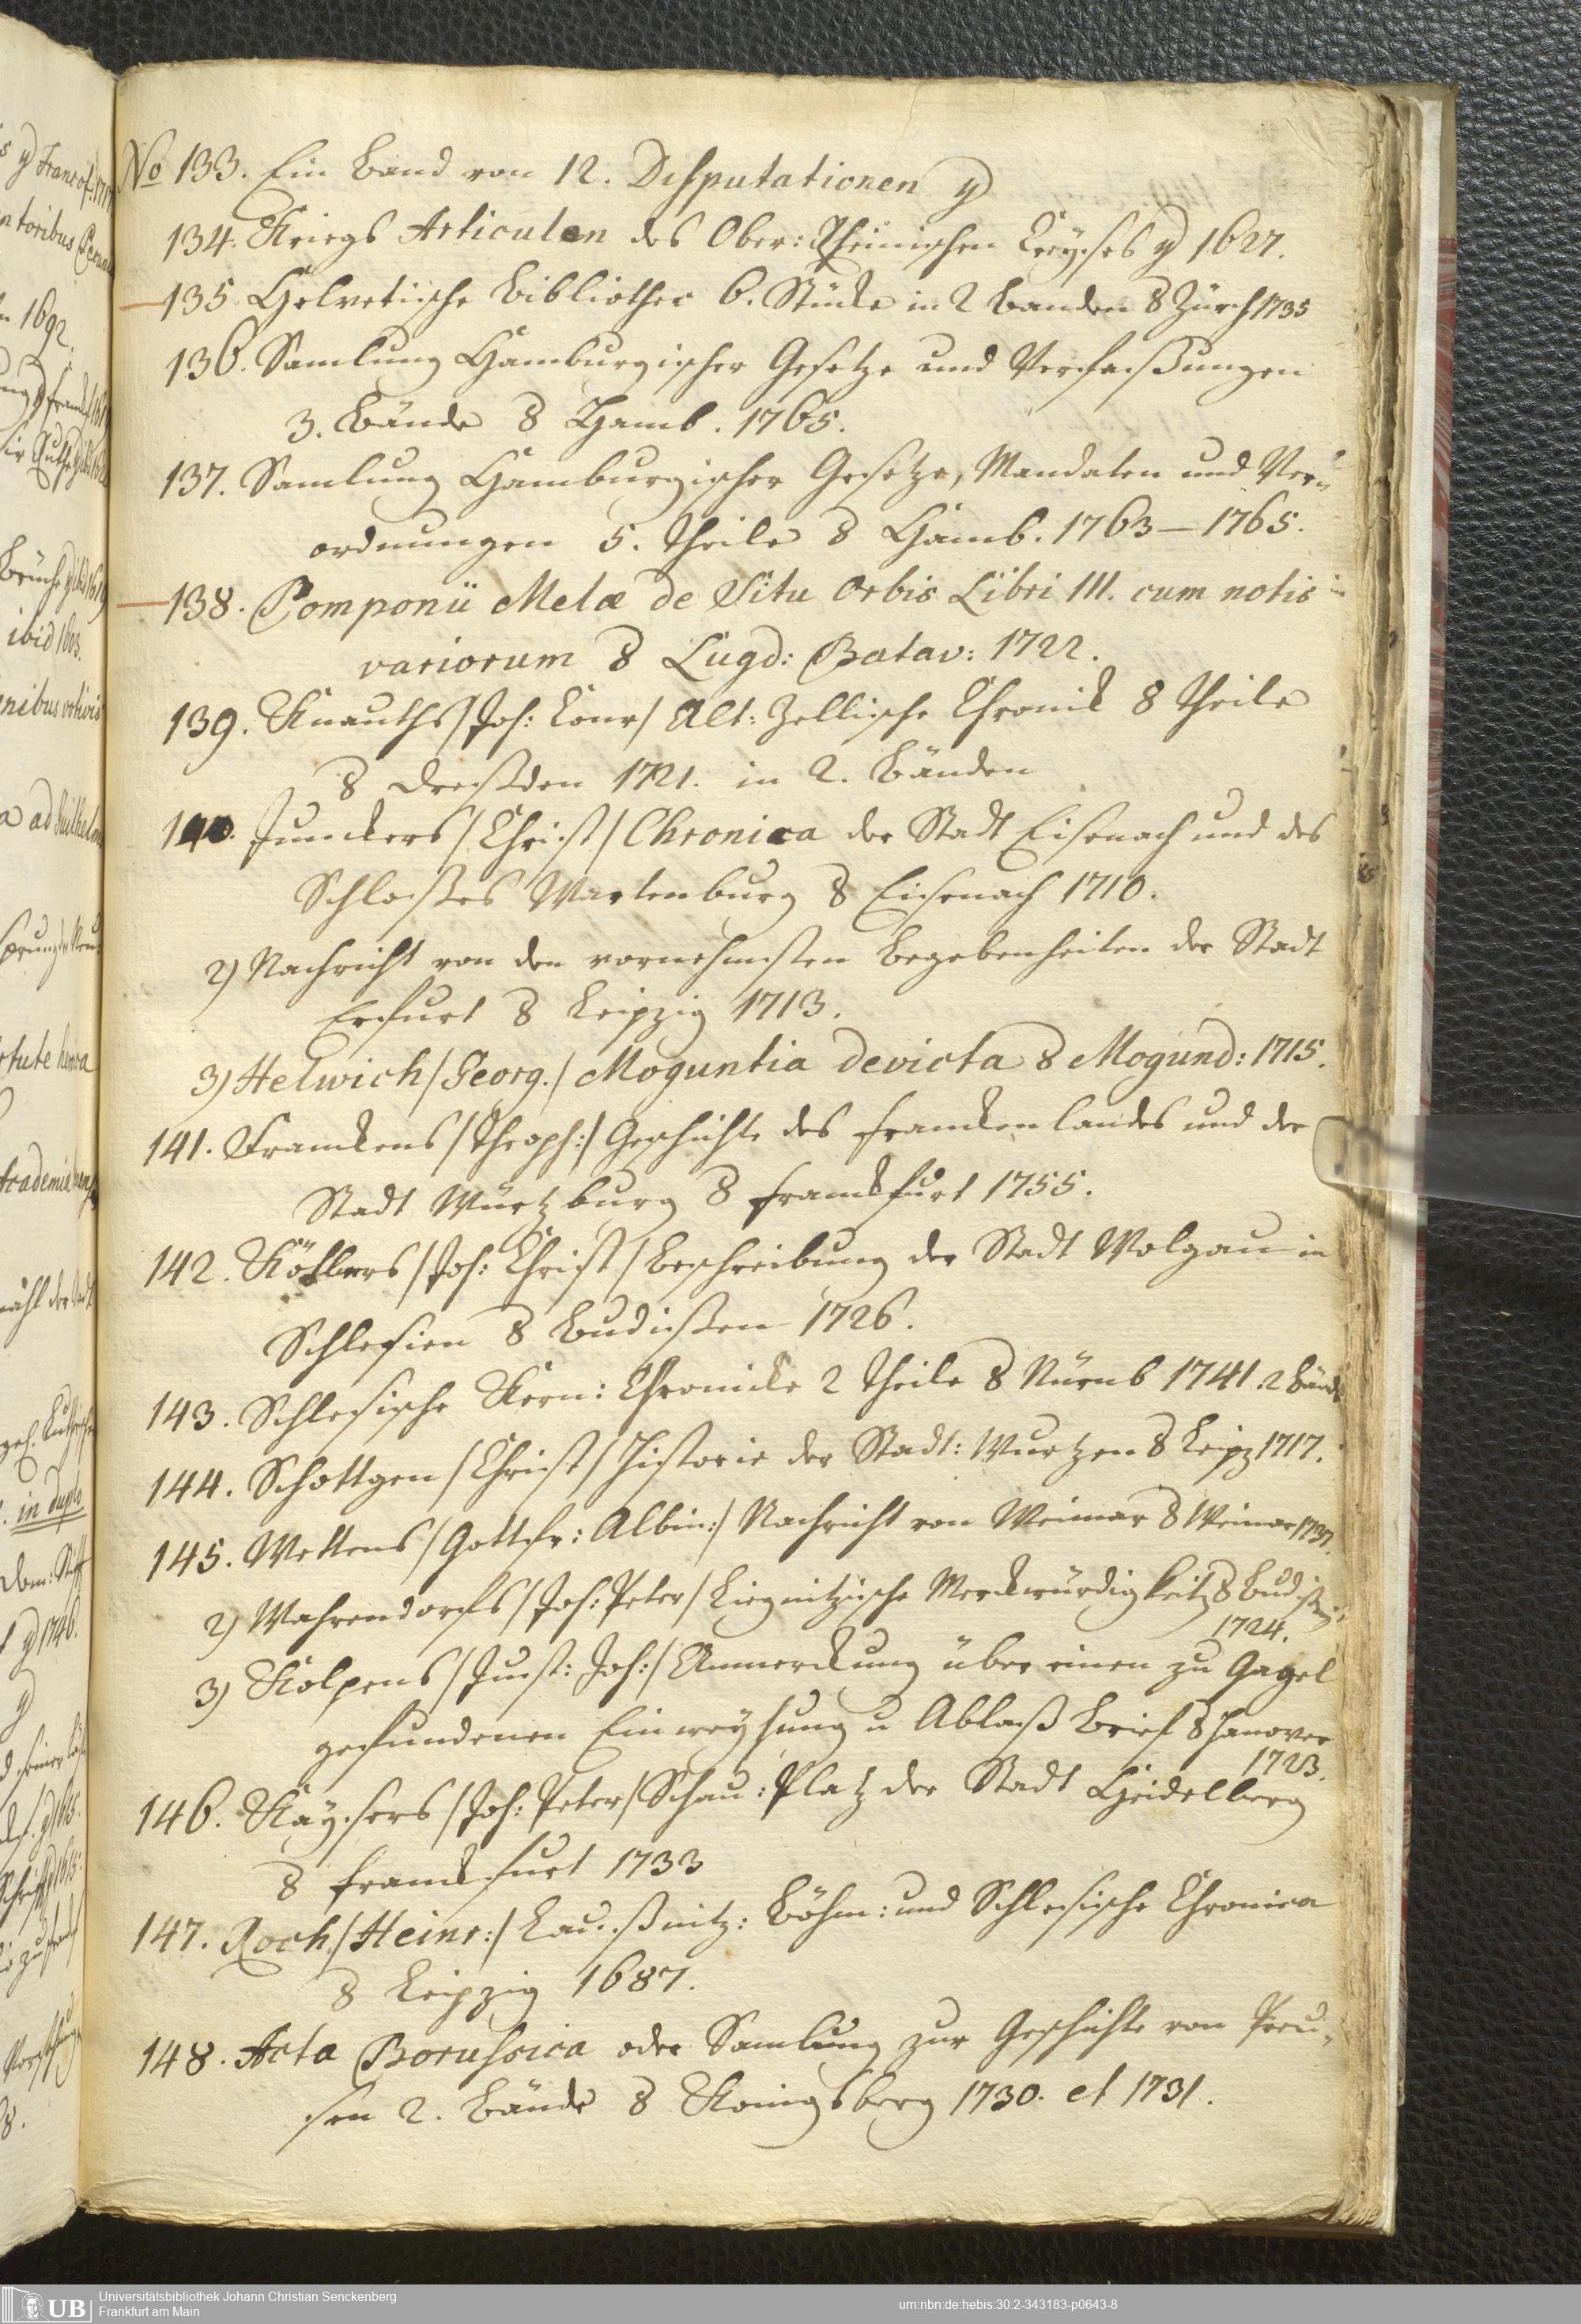 No 133. Ein Band von 12. Disputationen 4
134. Kriegs Articulen des Ober: Rheinischen Creyses 4 1627.
135 Helvetische Bibliothec 6. Stücke in 2 Banden 8 Zürch 1735
136. Samlung Hamburgischer Gesetze und Verfaßungen
3. Bände 8 Hamb. 1765.
137. Samlung Hamburgischer Gesetze, Mandaten und Ver=
ordnungen 5. Theile 8 Hamb. 1763–1765.
138. Pomponii Melæ de Situ Orbis Libri III. cum notis
variorum 8 Lugd: Batav: 1722.
139. Knauths /Joh: Conr/ Alt: Zellische Chronik 8 Theile
8 Dreßden 1721. in 2. Bänden
140. Junckers /Christ/ Chronica der Stadt Eisenach und des
Schloßes Wartenburg 8 Eisenach 1710.
2) Nachricht von den vornehmsten Begebenheiten der Stadt
Erfurt 8 Leipzig 1713.
3) Helwich /Georg./ Moguntia devicta 8 Mogund: 1715.
141. Franckens /Theoph:/ Geschichte des Franckenlandes und der
Stadt Würtzburg 8 Franckfurt 1755.
142. Köhlers /Joh: Christ/ Beschreibung der Stadt Wolgau in
Schlesien 8 Budißen 1726.
143. Schlesische Kern: Chronicke 2 Theile 8 Nürnb 1741. 2 Bände
144. Schottgen /Christ/ Historie der Stadt: Wurtzen 8 Leipz 1717.
145. Wettens /Gottfr: Albin:/ Nachricht von Weimar 8 Weimar 1737.
2) Wahrendorfs /Joh: Peter/ Liegnitzische Merckwürdigkeitz 8 Budißin
1724.
3) Kolpens /Just: Joh:/ Anmerckung über einen zu Gagel
gefundenen Einweyhung u Ablaß Brief 8 Hanover
1723.
146. Kaysers /Joh: Peter/ Schau: Platz der Stadt Heidelberg
8 Franckfurt 1733
147. Roch /Heinr:/ Laußnitz: Böhm: und Schlesische Chronica
8 Leipzig 1687.
148. Acta Borussica oder Samlung zur Geschichte von Preu=
sen 2. Bände 8 Konigsberg 1730. et 1731.
UB Universitätsbibliothek Johann Christian Senckenberg
Frankfurt am Main
urn:nbn:de:hebis:30:2-343183-p0643-8